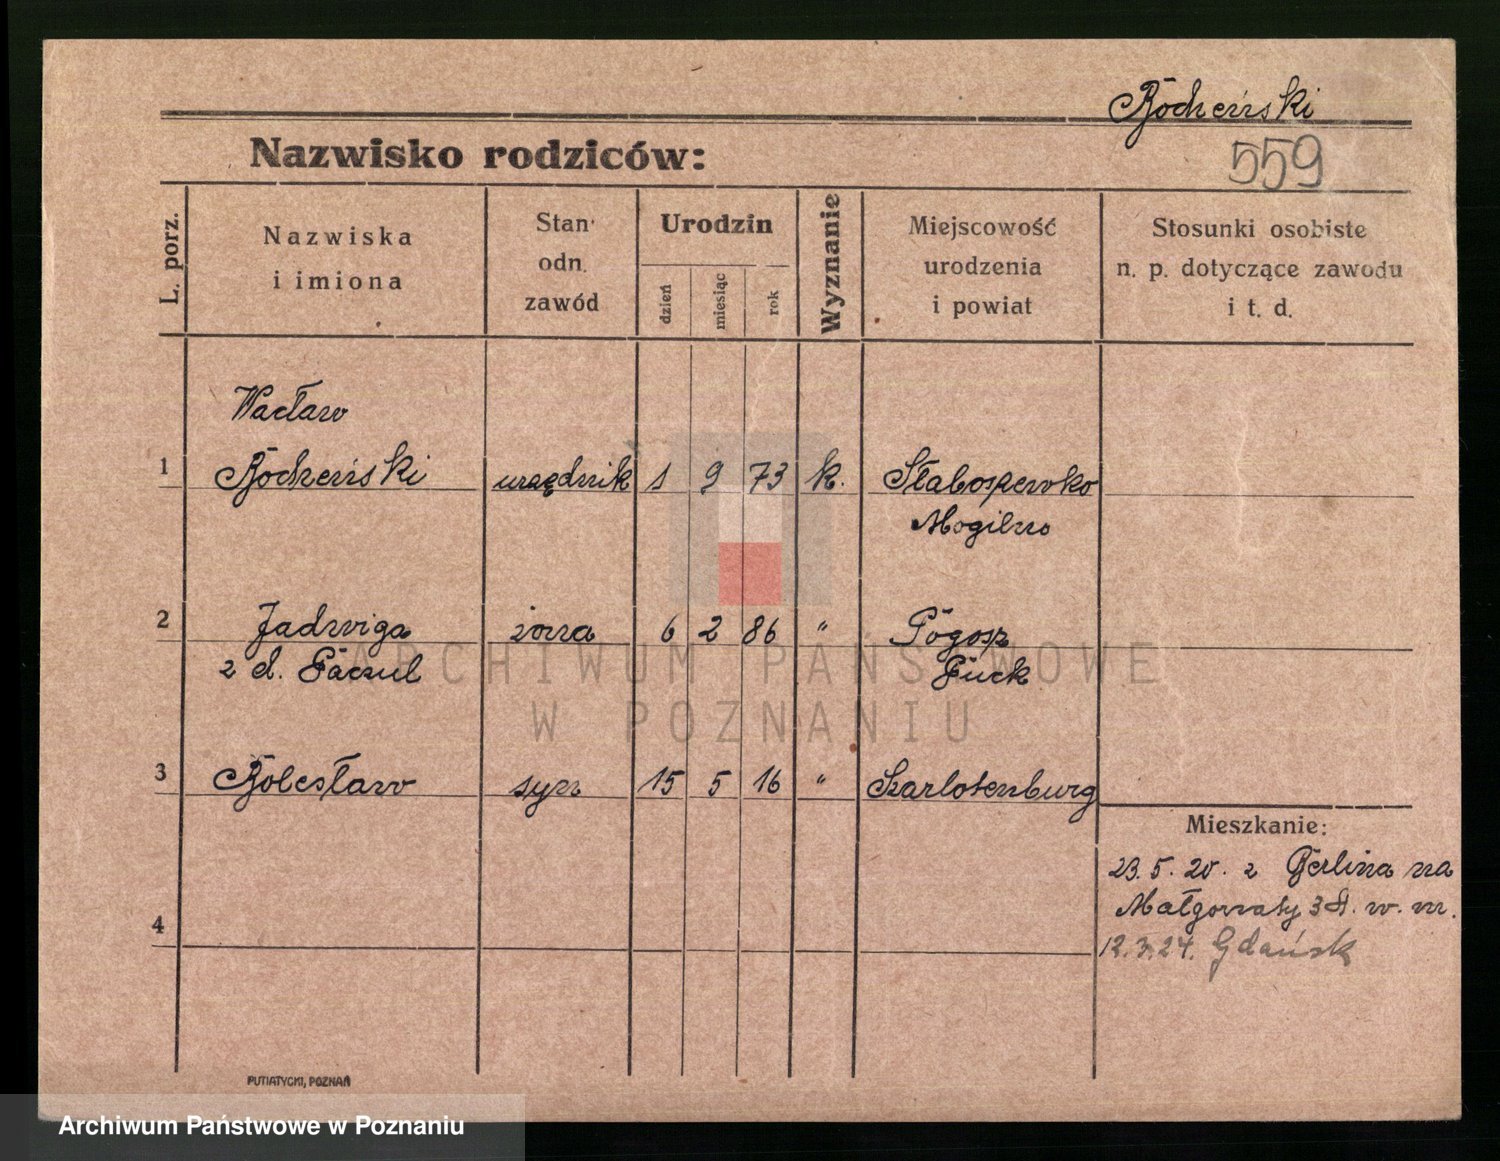 Bocheński
559
Nazwisko rodziców:
L. porz.
Nazwiska
i imiona
Stan·
odn.
zawód
Urodzin
dzień
miesiąc
rok
Wyznanie
Miejscowość
urodzenia
i powiat
Stosunki osobiste
n. p. dotyczące zawodu
i t. d.
Wacław
1 Bocheński urzędnik 1 9 73 k. Słaboszewko
Mogilno
2 Jadwiga żona 6 2 86 "
z d.
Puck
3 Bolesław syn 15 5 16 " Szarlotenburg
Mieszkanie:
23. 5. 20. z Berlina na
Małgorzaty 3 w. m.
4
12.3.24. Gdańsk
PUTIATYCKI, POZNAŃ
ARCHIWUM PAŃSTWOWE
W POZNANIU
Archiwum Państwowe w Poznaniu